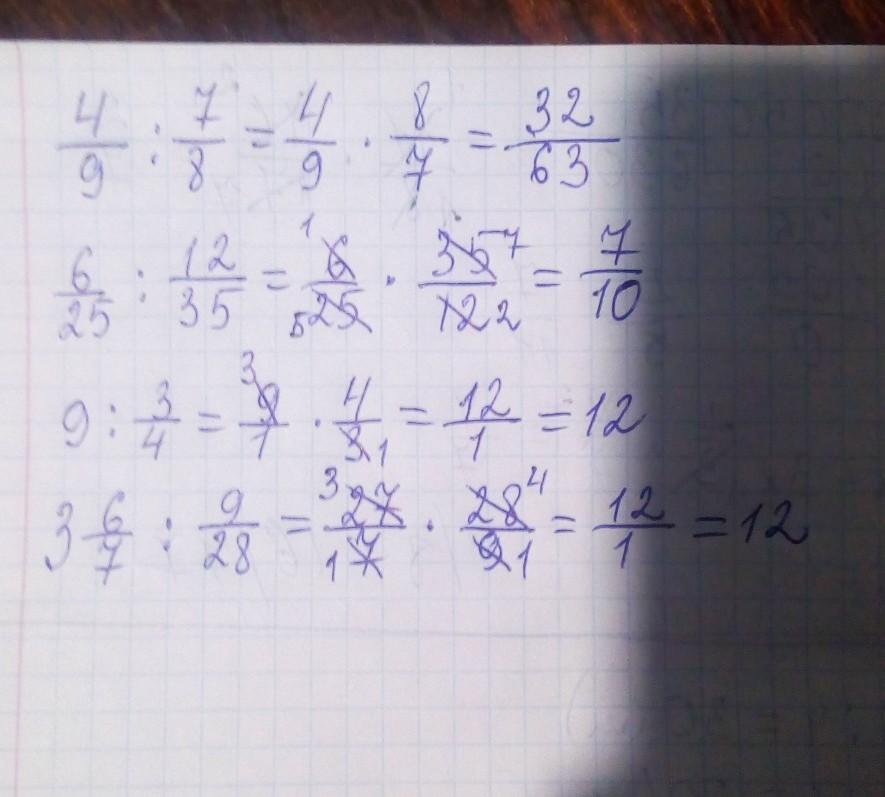 4/9 : 7/8 = 4/9 · 8/7 = 32/63
6/25 : 12/35 = 1 6/25 5 · 35 7/12 2 = 7/10
9 : 3/4 = 3 9/1 · 4/3 1 = 12/1 = 12
3 6/7 : 9/28 = 3 27/1 7 · 28 4/9 1 = 12/1 = 12